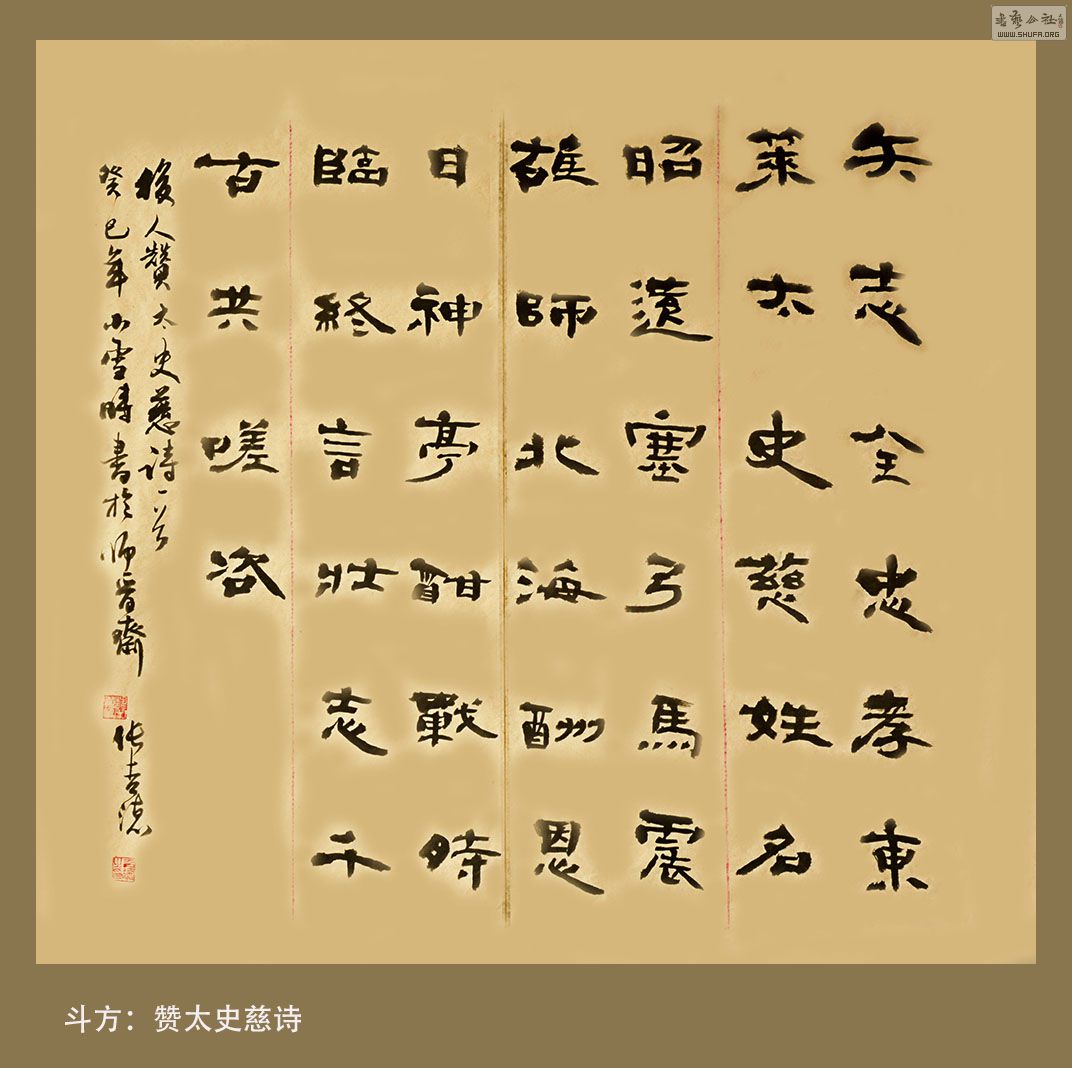 書藝公社
WWW.SHUFA.ORG
矢志全忠孝東
萊太史慈姓名
昭遠塞弓馬震
雄師北海酬恩
日神亭酣戰時
臨終言壯志千
古共嗟咨
後人贊太史慈诗一首
癸巳年小雪時書於师晋齋
张
斗方：赞太史慈诗